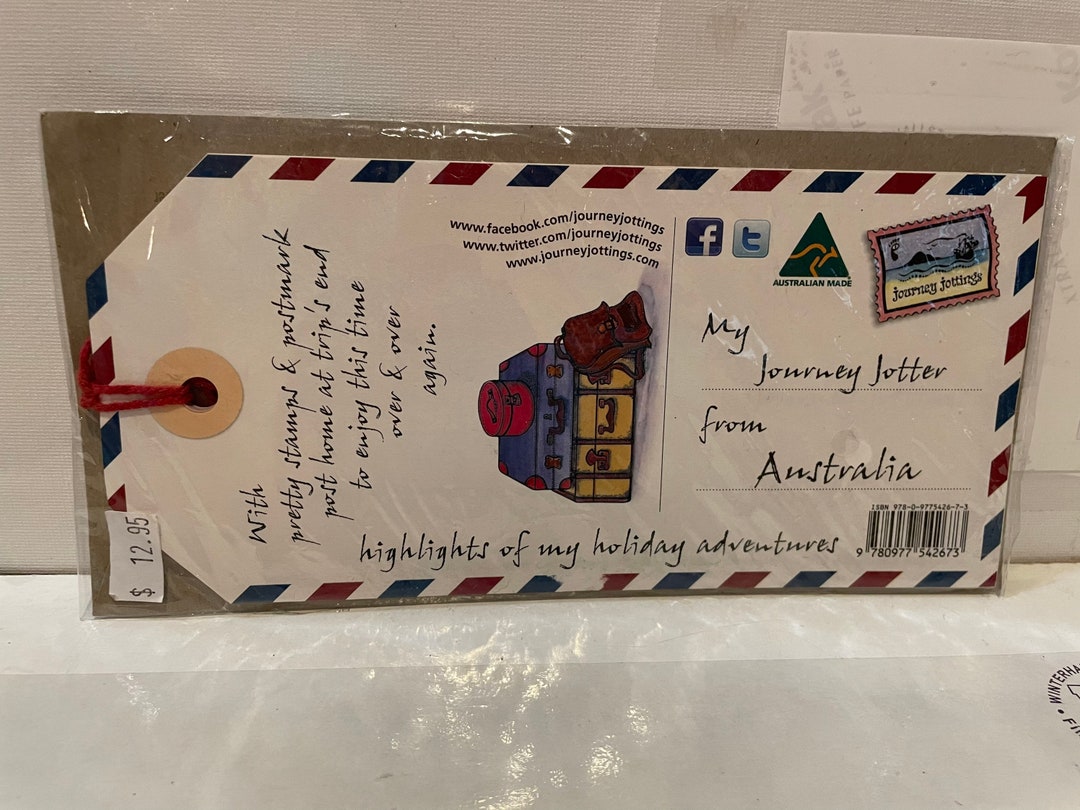 www.facebook.com/journeyjottings
www.twitter.com/journeyjottings
www.journeyjottings.com
f
t
AUSTRALIAN MADE
journey jottings
My
Journey Jotter
from
Australia
With
pretty stamps & postmark
post home at trip's end
to enjoy this time
over & over
again.
highlights of my holiday adventures
ISBN 978-0-9775426-7-3
9 780977 542673
$ 12.95